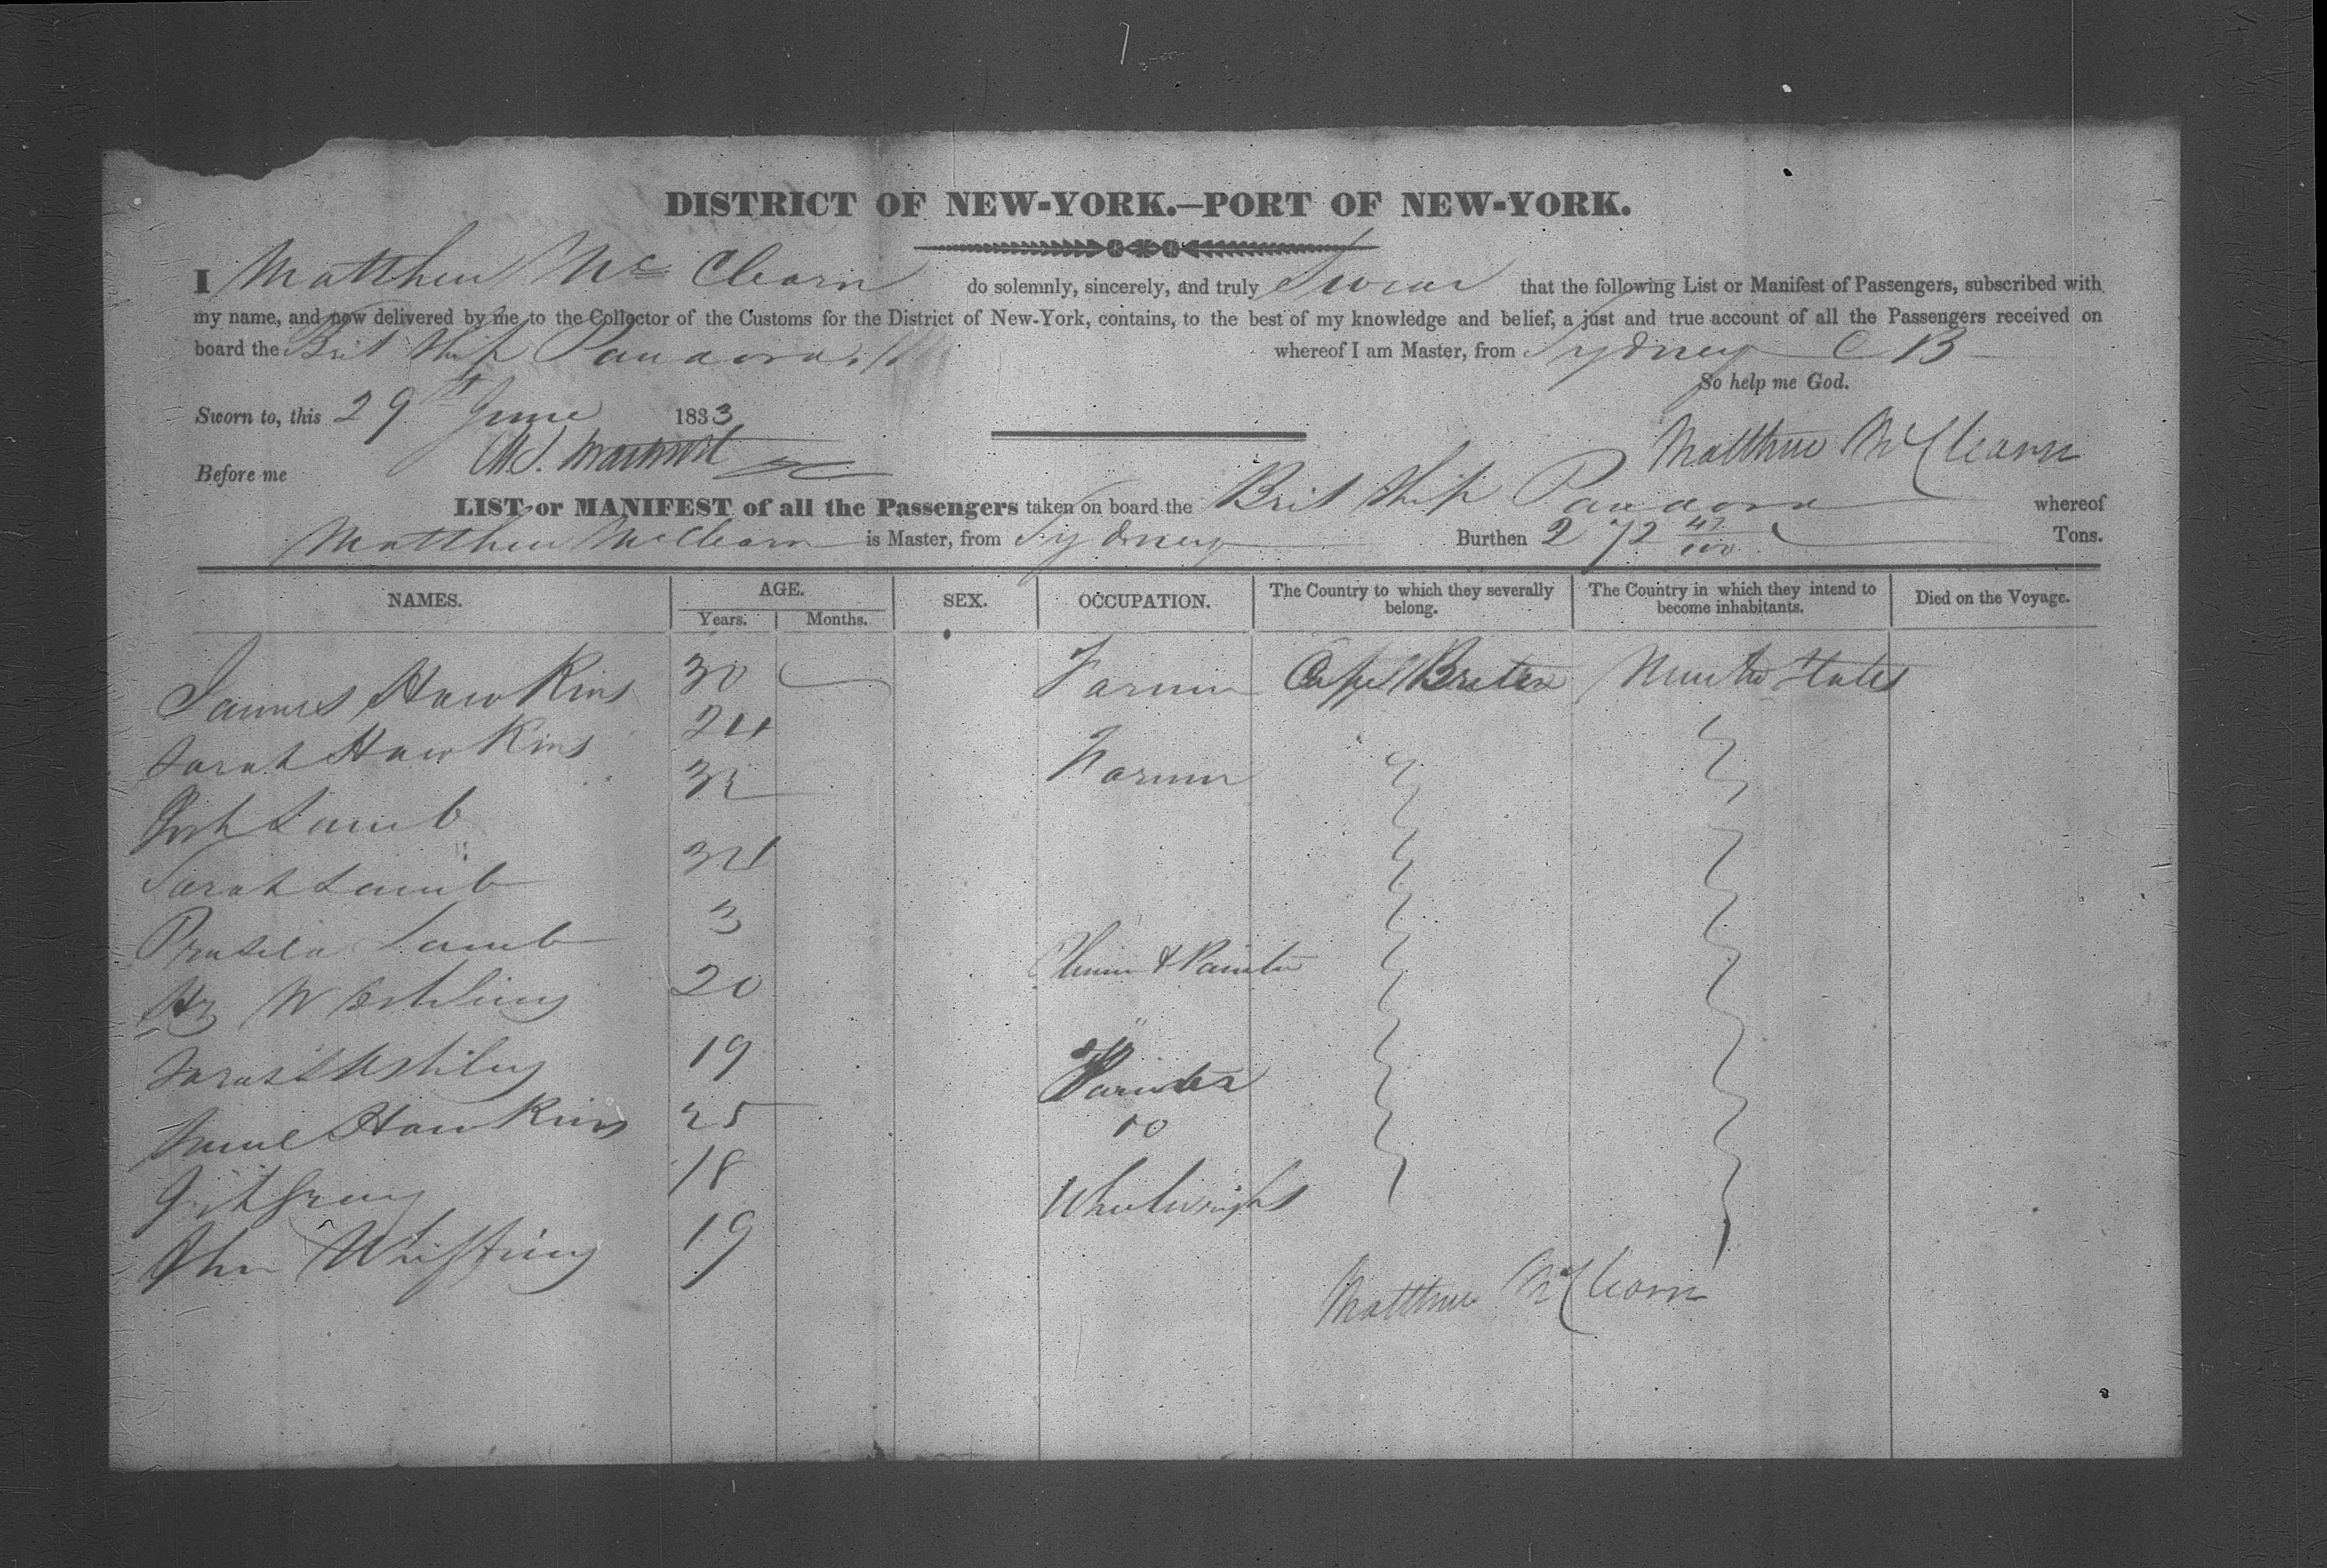 DISTRICT OF NEW-YORK.—PORT OF NEW-YORK.
I Matthew Mc Clearn do solemnly, sincerely, and truly Swear that the following List or Manifest of Passengers, subscribed with
my name, and now delivered by me to the Collector of the Customs for the District of New-York, contains, to the best of my knowledge and belief, a just and true account of all the Passengers received on
board the Brit Ship Pandora whereof I am Master, from Sydney C B
So help me God.
Sworn to, this 29th June 1833
Matthew McClearn
Before me
LIST or MANIFEST of all the Passengers taken on board the Brit Ship Pandora whereof
Matthew McClearn is Master, from Sydney Burthen 272 47/100 Tons.
NAMES. AGE. SEX. OCCUPATION. The Country to which they severally belong. The Country in which they intend to become inhabitants. Died on the Voyage.
Years. Months.
James Hawkins 30 Farmer Cape Breton United States
Sarah Hawkins 24
Lamb 32 Farmer
Sarah Lamb 34
Lamb 3
20 & Painter
19
Hawkins 25 Painter
18 Do
John Whifting 19 Wheelwright
Matthew McClearn